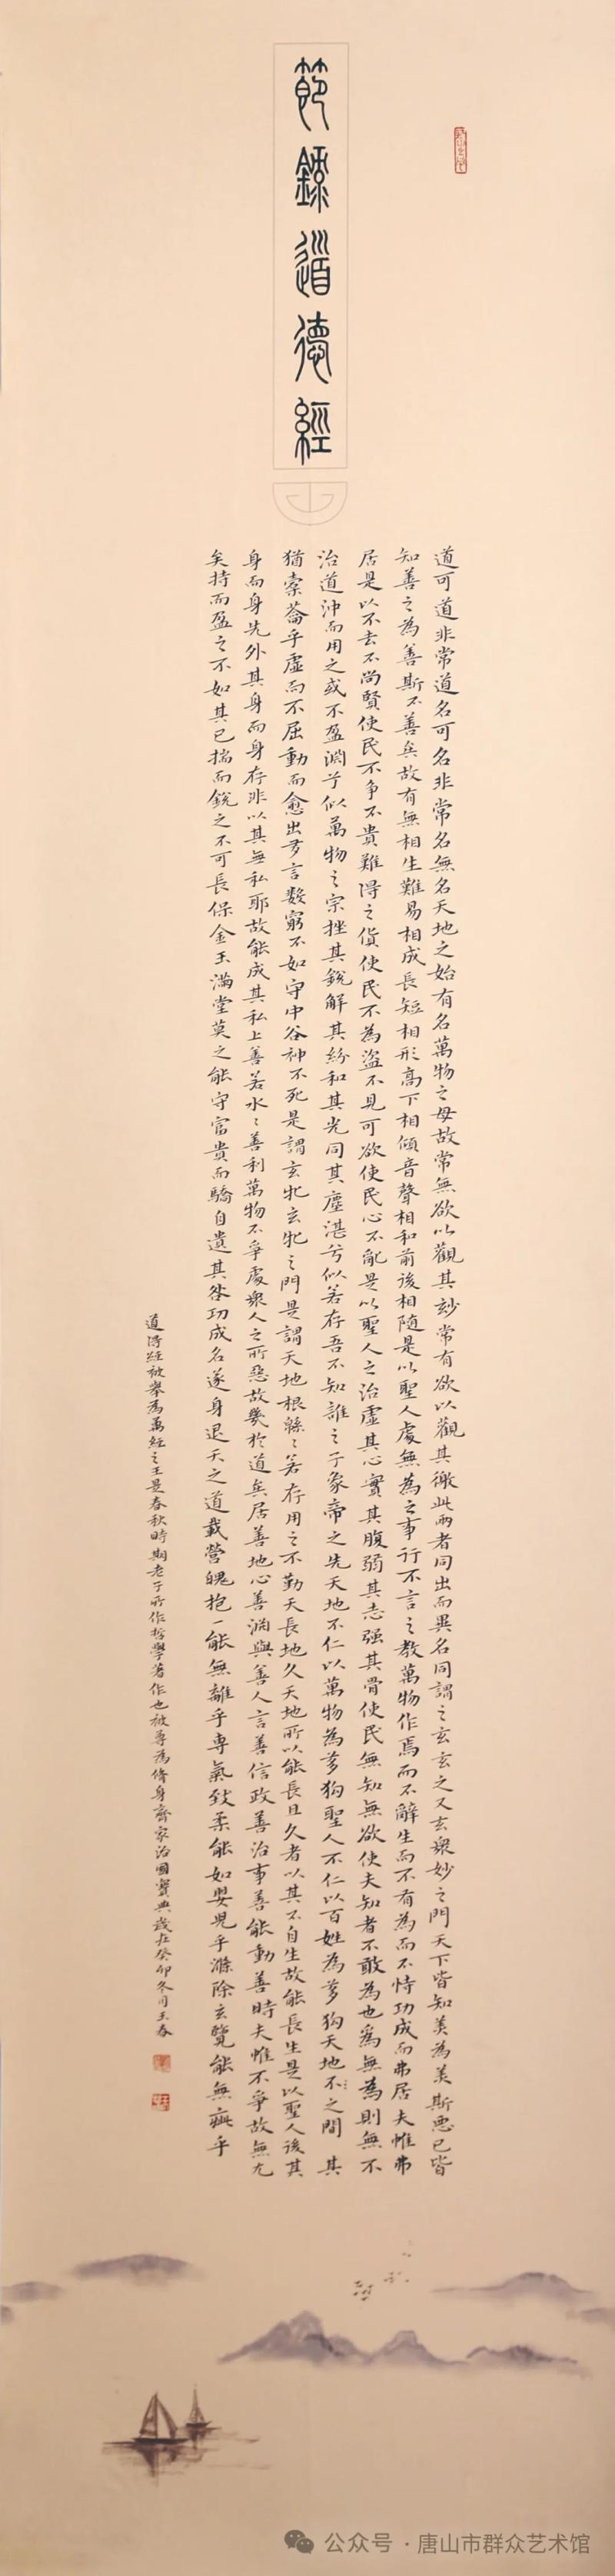 節錄道德經
道可道非常道名可名非常名無名天地之始有名萬物之母故常無欲以觀其妙常有欲以觀其徼此兩者同出而異名同謂之玄玄之又玄衆妙之門天下皆知美為美斯惡已皆
知善之為善斯不善矣故有無相生難易相成長短相形高下相傾音聲相和前後相隨是以聖人處無為之事行不言之教萬物作焉而不辭生而不有為而不恃功成而弗居夫惟弗
居是以不去不尚賢使民不爭不貴難得之貨使民不為盜不見可欲使民心不亂是以聖人之治虛其心實其腹弱其志强其骨使民無知無欲使夫知者不敢為也為無為則無不
治道沖而用之或不盈淵乎似萬物之宗挫其銳解其紛和其光同其塵湛兮似若存吾不知誰之子象帝之先天地不仁以萬物為芻狗聖人不仁以百姓為芻狗天地不之間其
猶橐籥乎虛而不屈動而愈出多言數窮不如守中谷神不死是謂玄牝玄牝之門是謂天地根緜〻若存用之不勤天長地久天地所以能長且久者以其不自生故能長生是以聖人後其
身而身先外其身而身存非以其無私耶故能成其私上善若水〻善利萬物不爭處衆人之所惡故幾於道矣居善地心善淵與善人言善信政善治事善能動善時夫惟不爭故無尤
矣持而盈之不如其已揣而銳之不可長保金玉滿堂莫之能守富貴而驕自遺其咎功成名遂身退天之道載營魄抱一能無離乎專氣致柔能如嬰兒乎滌除玄覽能無疵乎
道得經被舉為萬經之王是春秋時期老子所作哲學著作也被尊為修身齊家治國寶典歲在癸卯冬月王春
公众号·唐山市群众艺术馆